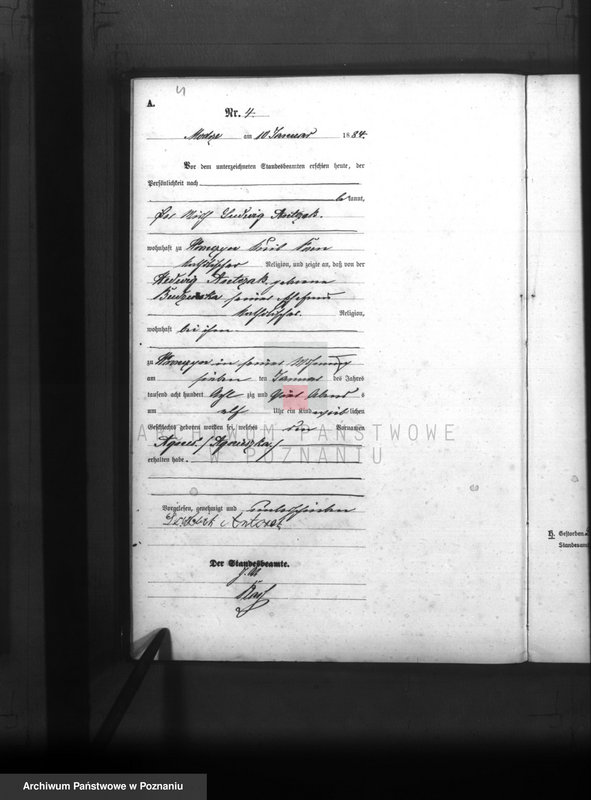 4
A.
Nr. 4.
Modze am 10 Januar 1884.
Vor dem unterzeichneten Standesbeamten erschien heute, der
Persönlichkeit nach
be kannt,
Ludwig Antczak.
wohnhaft zu
katholischer Religion, und zeigte an, daß von der
Hedwig Antczak geborene
seiner Ehefrau
katholischer Religion,
wohnhaft bei ihm
zu in seiner Wohnung
am sieben ten Januar des Jahres
tausend acht hundert Acht zig und vier Abends
um elf Uhr ein Kind weib lichen
Geschlechts geboren worden sei, welches den Vornamen
Agnes /Agnieszka/
erhalten habe.
Vorgelesen, genehmigt und unterschrieben
Antczak
Der Standesbeamte.
H. Gestorben
Standesam
ARCHIWUM PAŃSTWOWE
W POZNANIU
Archiwum Państwowe w Poznaniu